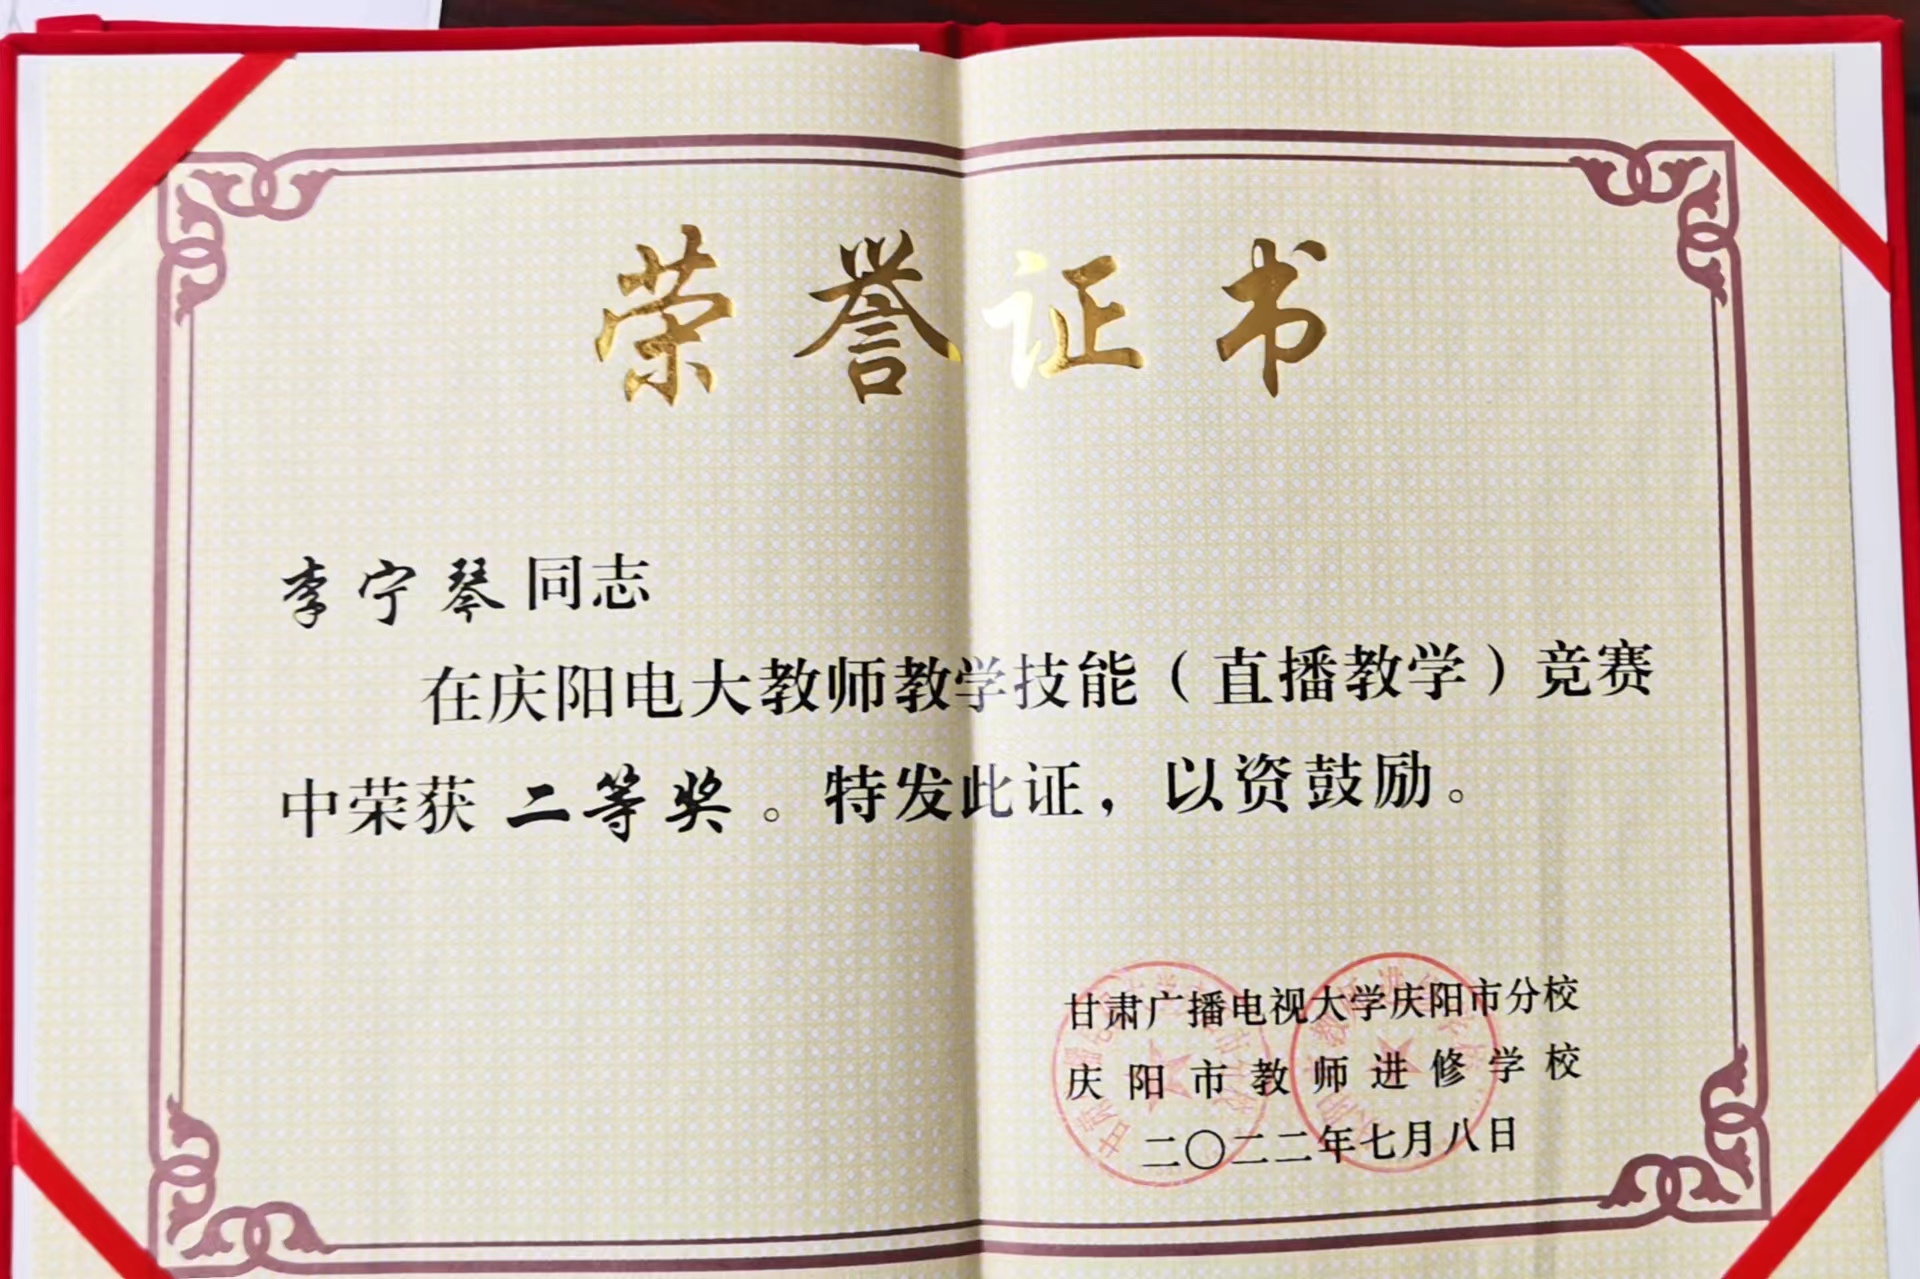 荣誉证书
李宁琴同志
在庆阳电大教师教学技能（直播教学）竞赛
中荣获 二等奖 。特发此证，以资鼓励。
甘肃广播电视大学庆阳市分校
庆阳市教师进修学校
二〇二二年七月八日